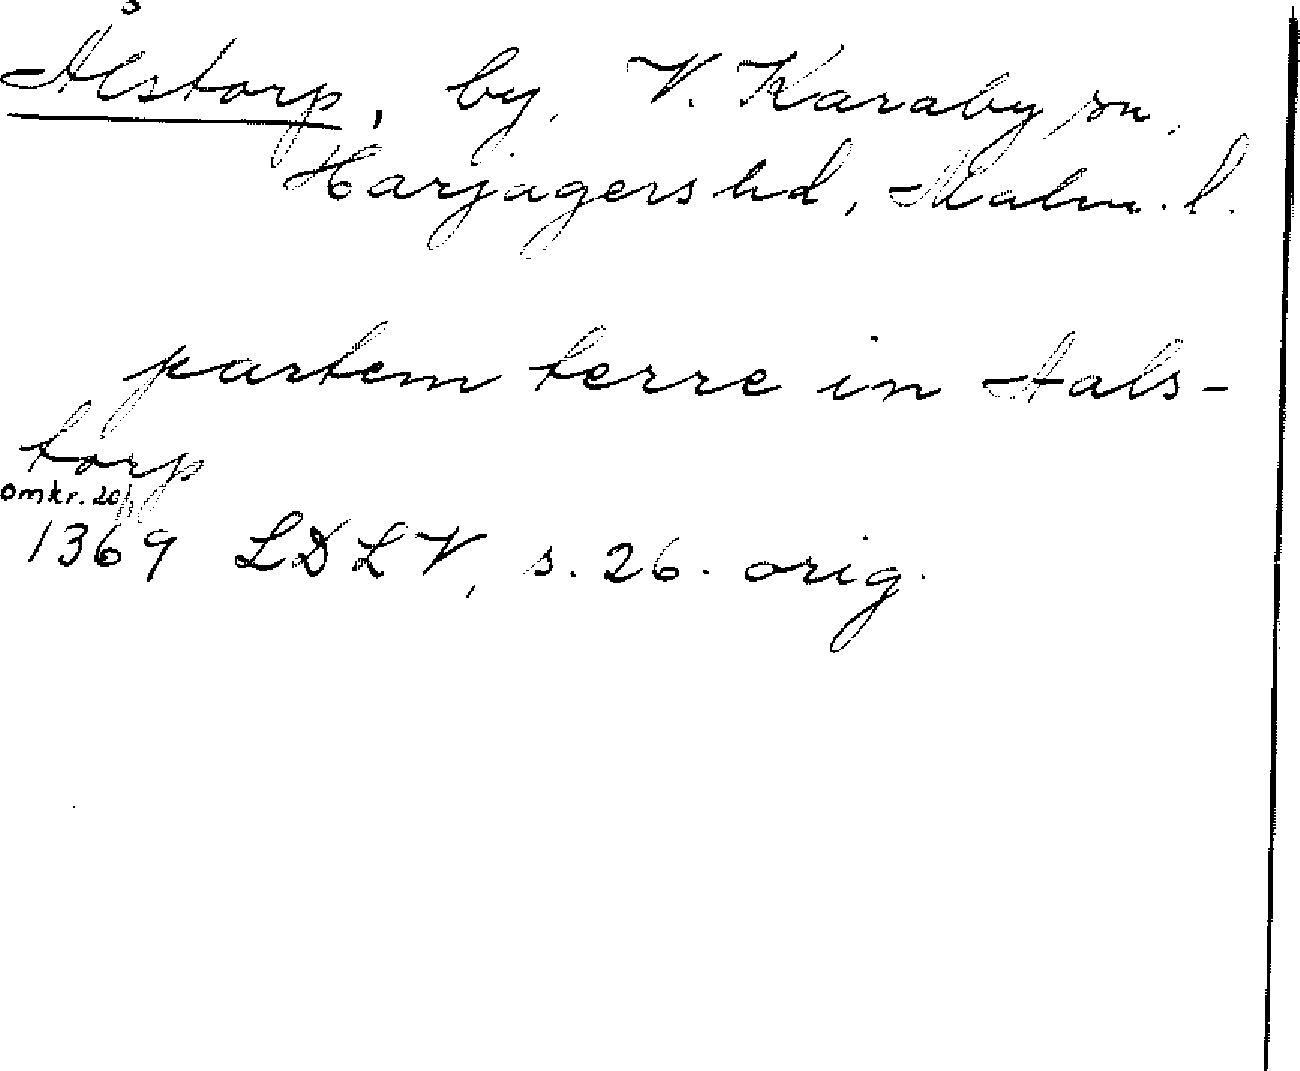 Ålstorp, by, V. Karaby sn,
Harjagers hd, Malm. l.
partem terre in Aals-
torp
omkr. 20/1
1369 LDLV, s. 26. orig.